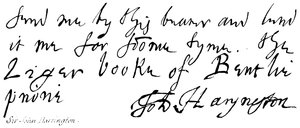 Send me by this bearer and lend
it me for soome tyme. the
Liger booke of Bentlie
priorie
Joh Haryngton
Sir John Harrington.